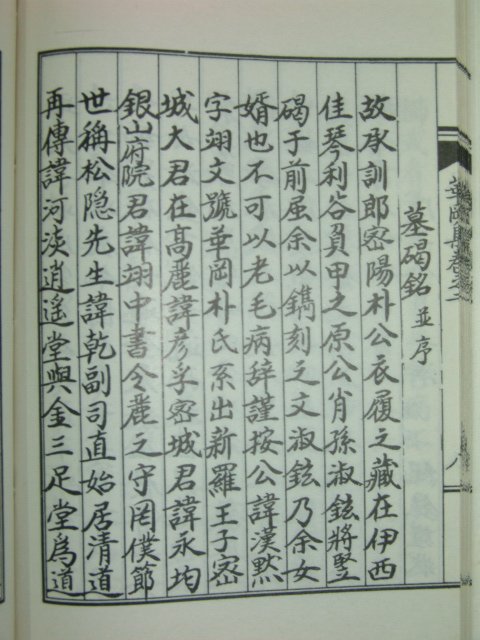 墓碣銘 並序
故承訓郎密陽朴公衣履之藏在伊西
佳琴利谷負甲之原公肖孫淑鉉將豎
碣于前屈余以鐫刻之文淑鉉乃余女
婿也不可以老毛病辞謹按公諱漢默
字翊文號華岡朴氏系出新羅王子密
城大君在高麗諱彦孚密城君諱永均
銀山府院君諱翊中書令麗之守罔僕節
世稱松隐先生諱乾副司直始居清道
再傳諱河淡逍遥堂與金三足堂爲道